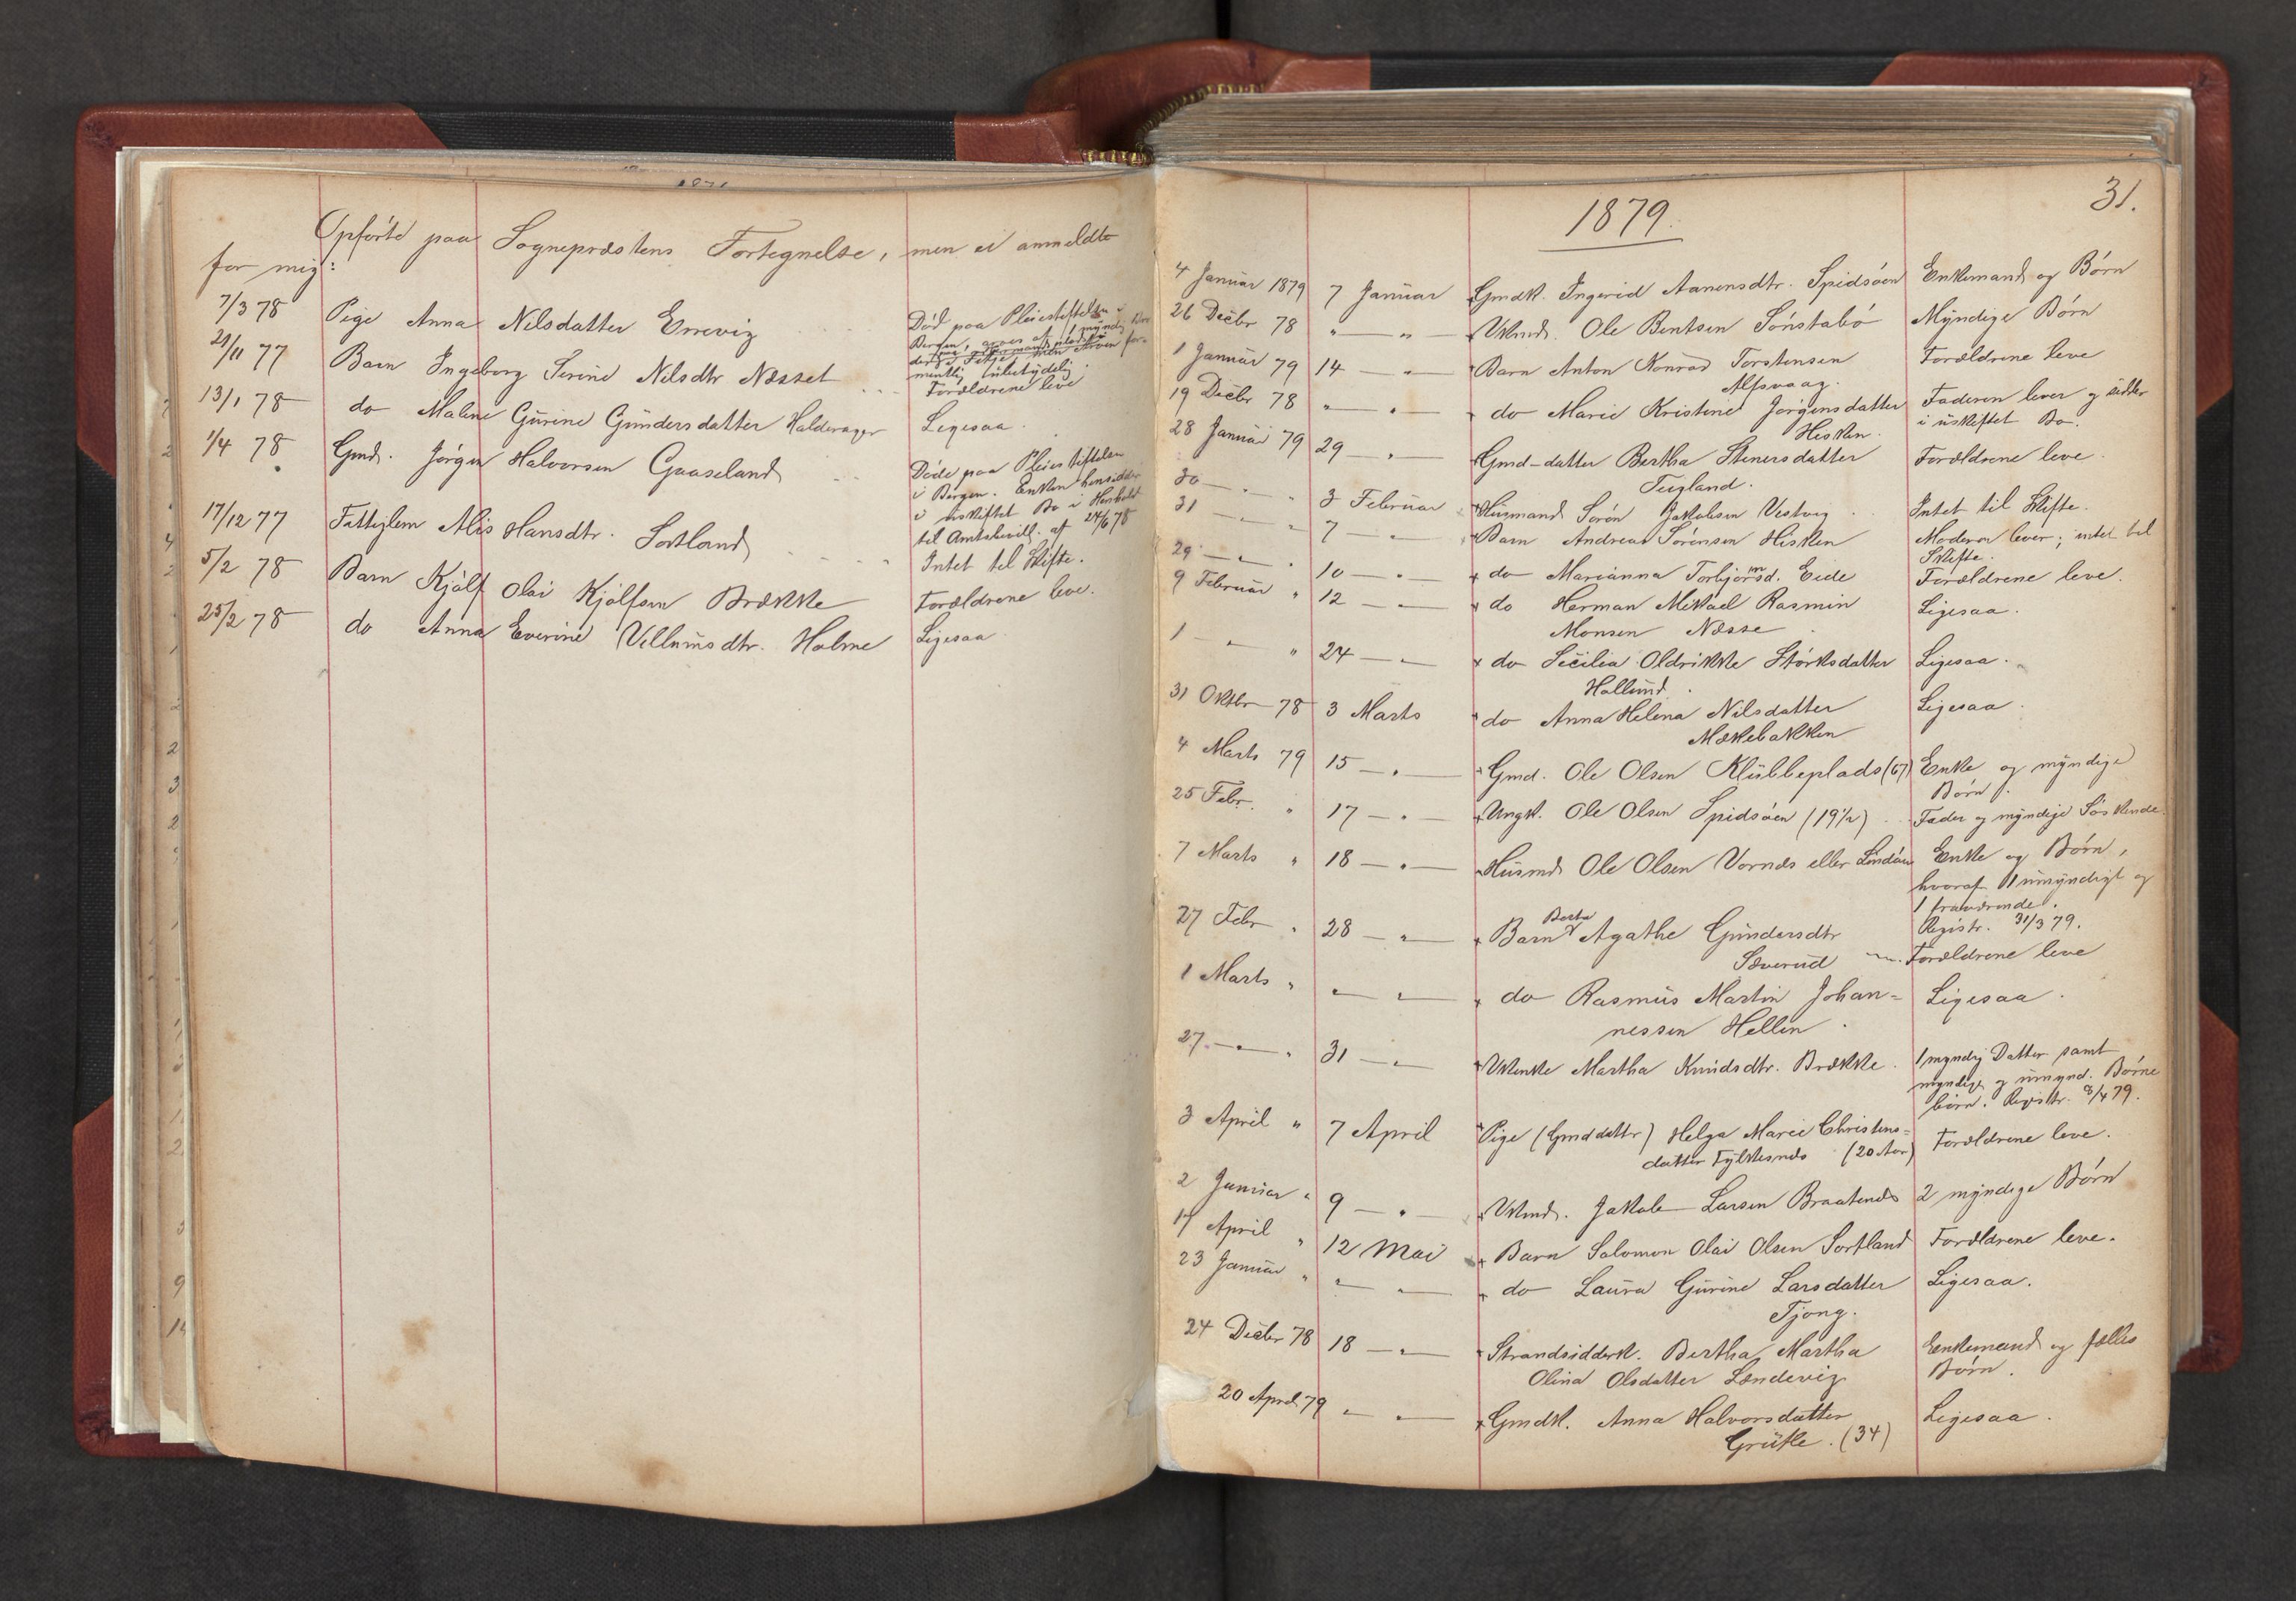 Opførte paa Sogneprestens Fortegnelse, men ei anmeldte
for mig:
7/3 78 Pige Anna Nilsdatter Errevig Død paa Pleiestiftelsen i
Bergen, arves af 1 myndig
minlig ubetydelig.
29/11 77 Barn Ingeborg Serine Nilsdtr Næsset Forældrene leve
13/1 78 do Malene Gurine Gundersdatter Halderager Ligesaa.
1/4 78 Gmd. Jørgen Halvorsen Gaaseland Døde paa Pleiestiftelsen
i Bergen. Enken hensidder
i uskiftet Bo i Henhold
til Amtsbevill. af 24/6 78
17/12 77 Fattiglem Alis Hansdtr. Sortland Intet til Skifte.
5/2 78 Barn Kjølf Olai Kjølfsen Brække Forældrene leve.
25/2 78 do Anna Everine Villumsdtr. Holme Ligesaa
31.
1879.
4 Januar 1879 7 Januar Gmdk. Ingerid Aanensdtr. Spidsøen Enkemand og Børn
26 Decbr 78 " — " — Vkmd. Ole Bentsen Sønstabø Myndige Børn
1 Januar 79 14 — " — Barn Anton Konrad Torstensen Forældrene leve
Alfsvaag.
19 Decbr 78 " — " — do Marie Kristine Jørgensdatter Faderen lever og sidder
Hisken. i uskiftet Bo.
28 Januar 79 29 — " — Gmd-datter Bertha Stenersdatter Forældrene leve.
Tugland.
30 — " — " 3 Februar Husmand Søren Jakobsen Vestvig Intet til Skifte.
31 — " — " 7 — " — Barn Andreas Sørensen Hisken Moderen lever; intet til
Skifte.
29 — " — " 10 — " — do Marianna Torbjørnsd. Eide Forældrene leve.
9 Februar " 12 — " — do Herman Mikael Rasmin Ligesaa.
Monsen Næsse
1 — " — " 24 — " — do Secilia Oldrikke Størksdatter Ligesaa.
Hallund.
31 Oktbr 78 3 Marts do Anna Helena Nilsdatter Ligesaa.
Mækebakken
4 Marts 79 15 — " — Gmd. Ole Olsen Klubbeplads (67) Enke og myndige
Børn.
25 Febr. " 17 — " — Ungk. Ole Olsen Spidsøen (19½) Fader og myndige Søskende.
7 Marts " 18 — " — Husmd Ole Olsen Vornæs eller Lindøen Enke og Børn,
hvoraf 1 umyndigt og
1 fraværende.
Registr. 31/3 79.
27 Febr " 28 — " — Barn Berta Agathe Gundersdtr
Sæverud Forældrene leve
1 Marts " " — " — do Rasmus Martin Johan= Ligesaa.
nessen Hellen.
27 — " — " 31 — " — Vkenke Martha Knudsdtr. Brække. 1 myndig Datter samt
myndige og umynd. Børne
børn. Registr. 8/4 79.
3 April " 7 April Pige (Gmddattr) Helga Marie Christens= Forældrene leve.
datter Fylkesnæs (20 Aar)
2 Januar " 9 — " — Vkmd. Jakob Larsen Braatenæs 2 myndige Børn
17 April " 12 Mai Barn Salomon Olai Olsen Sortland Forældrene leve.
23 Januar " " — " — do Laura Gurine Larsdatter Ligesaa.
Tjong.
24 Decbr 78 18 — " — Strandsidderk. Bertha Martha Enkemand og fælles
Olina Olsdatter Lændevig Børn.
20 April 79 " — " — Gmdk. Anna Halvorsdatter Ligesaa.
Grutle. (34)